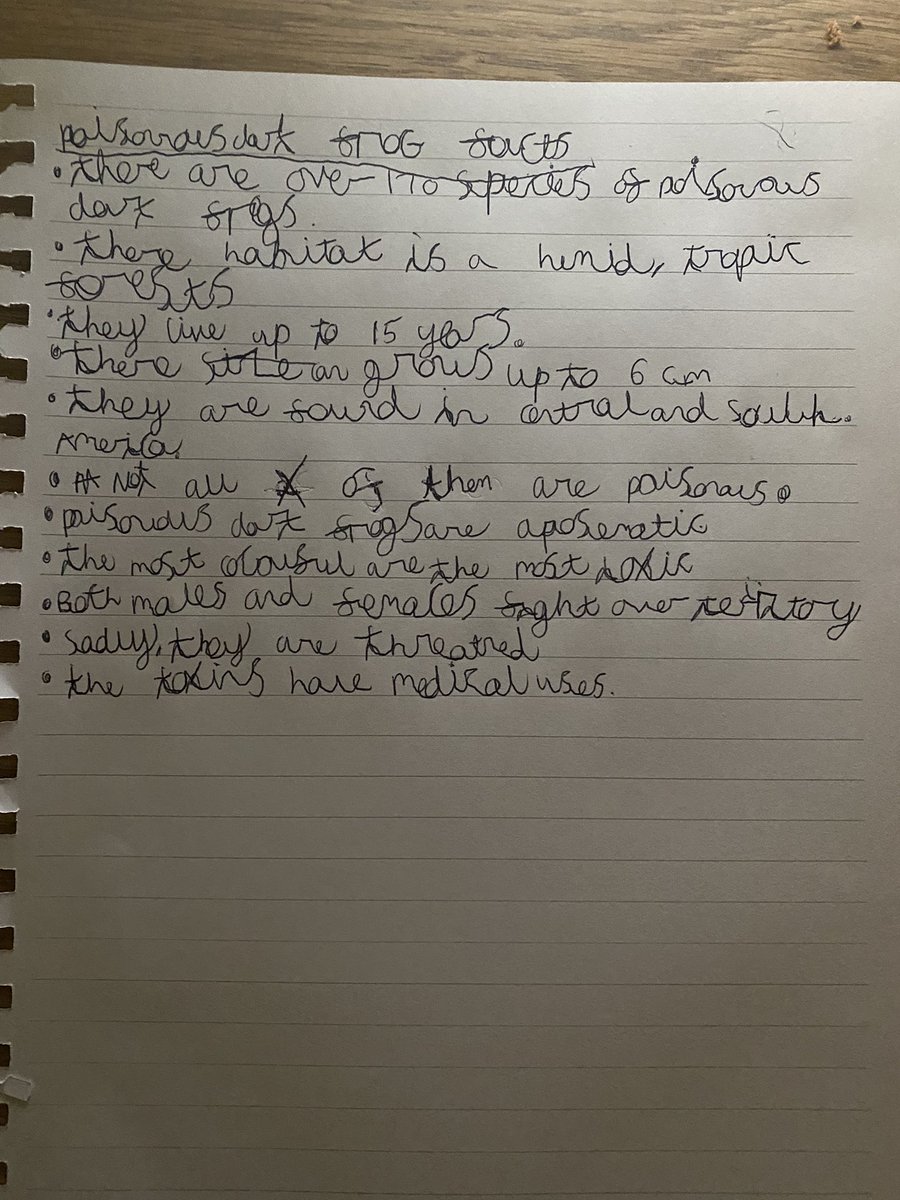 poisonous dart frog facts
• there are over 170 species of poisonous
dart frogs.
• there habitat is a humid, tropic
forests
• they live up to 15 years.
• there size can grows up to 6 cm
• they are found in central and south.
America.
• Not all of them are poisonous.
• poisonous dart frogs are aposematic
• the most colourful are the most toxic
• Both males and females fight over territory
• sadly, they are threatned
• the toxins have medical uses.